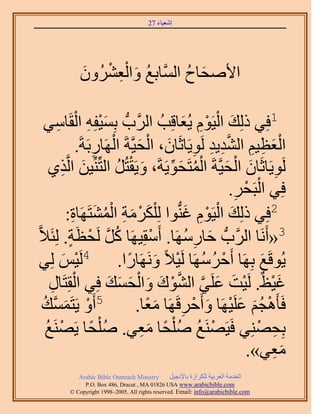 إشعياء 27
الأصحَاحُ السَّابِعُ وَالْعِشْرُونَ
1فِي ذلِكَ الْيَوْمِ يُعَاقِبُ الرَّبُّ بِسَيْفِهِ الْقَاسِي
الْعَظِيمِ الشَّدِيدِ لَوِيَاثَانَ، الْحَيَّةَ الْهَارِبَةَ.
لَوِيَاثَانَ الْحَيَّةَ الْمُتَحَوِّيَةَ، وَيَقْتُلُ التِّنِّينَ الَّذِي
فِي الْبَحْرِ.
2فِي ذلِكَ الْيَوْمِ غَنُّوا لِلْكَرْمَةِ الْمُشْتَهَاةِ:
3«أَنَا الرَّبُّ حَارِسُهَا. أَسْقِيهَا كُلَّ لَحْظَةٍ. لِئَلاَّ
يُوقَعَ بِهَا أَحْرُسُهَا لَيْلاً وَنَهَارًا. 4لَيْسَ لِي
غَيْظٌ. لَيْتَ عَلَيَّ الشَّوْكَ وَالْحَسَكَ فِي الْقِتَالِ
فَأَهْجُمَ عَلَيْهَا وَأَحْرِقَهَا مَعًا. 5أَوْ يَتَمَسَّكُ
بِحِصْنِي فَيَصْنَعُ صُلْحًا مَعِي. صُلْحًا يَصْنَعُ
مَعِي».
الخدمة العربية للكرازة بالإنجيل Arabic Bible Outreach Ministry
P.O. Box 486, Dracut , MA 01826 USA www.arabicbible.com
© Copyright 1998-2005, All rights reserved. Email: info@arabicbible.com